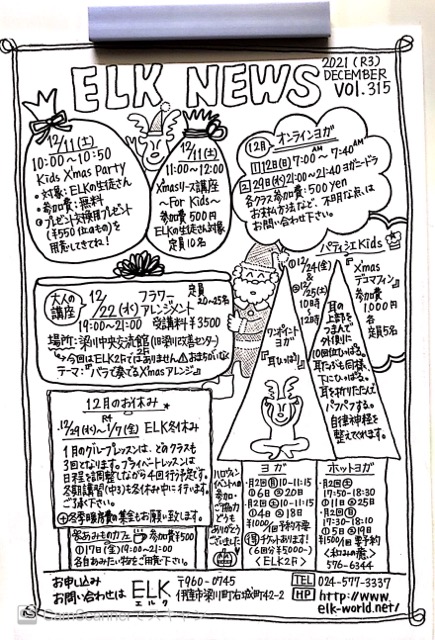 ELK NEWS
2021 (R3)
DECEMBER
VOL.315
12/11(土)
10:00〜10:50
Kids X'mas Party
・対象:ELKの生徒さん
・参加費:無料
プレゼント交換用プレゼント
(¥550位のもの)を
用意してきてね!
12/11(土)
11:00〜12:00
Xmasリース講座
〜For Kids〜
参加費 500円
ELKの生徒さん対象
定員10名
12月 オンラインヨガ
1.12日(日)7:00AM〜7:40AM
2.29日(水)21:00〜21:40ヨガニードラ
各クラス参加費:500yen
お支払方法など、不明な点は
お問い合わせ下さい。
パティシエKids
①12/24(金)
&
②12/25(土)
10時
〜
12時
『X'mas
デコマフィン』
参加費
1,000円
各
定員5名
大人の講座
12/22(水)
フラワーアレンジメント
定員20〜25名
19:00〜21:00 受講料¥3500
場所:梁川中央交流館(旧梁川改善センター)
2F
↳今回はELK2Fではありません⚠おまちがいなく
テーマ:『バラで奏でるXmasアレンジ』
ワンポイント
ヨガ
『耳ひっぱり』
耳の
上部を
つまんで
外側に
10回位ひっぱる。
耳たぶも同様、
下にひっぱる。
耳を折りたたんで
パフパフする。
自律神経を
整えてくれます。
12月のお休み
12/29(水)〜R4 1/7(金) ELK冬休み
1月のグループレッスンは、どのクラスも
3回となります。プライベートレッスンは
日程を調整しながら4回行う予定です。
冬期講習(中3)も冬休み中に行います。
ご了承下さい。
+冬季暖房費の集金もお願い致します。
ハロウィン
イベントへの
参加・
ご協力
どうも
ありがとう
ございました
ヨガ
・月2回(月)10-11:15
①6日②20日
・月2回(土)10-11:15
①4日②18日
¥1000/1回 予約不要
得チケットあります!
(6回分¥5000-)
<ELK2F>
ホットヨガ
・月2回(土)
17:50-18:30
①11日②25日
・月2回(日)
17:30-18:10
①5日②19日
¥1500/1回 要予約
<和みの癒。>
576-6344
あみものカフェ 参加費¥500
①17日(金)19:00〜21:00
各自あみたい物をご用意下さい。
お申し込み
お問い合わせは
ELK
エルク
〒960-0745
伊達市梁川町右城町42-2
TEL 024-577-3337
HP http://www.
elk-world.net/
CamScannerでスキャン